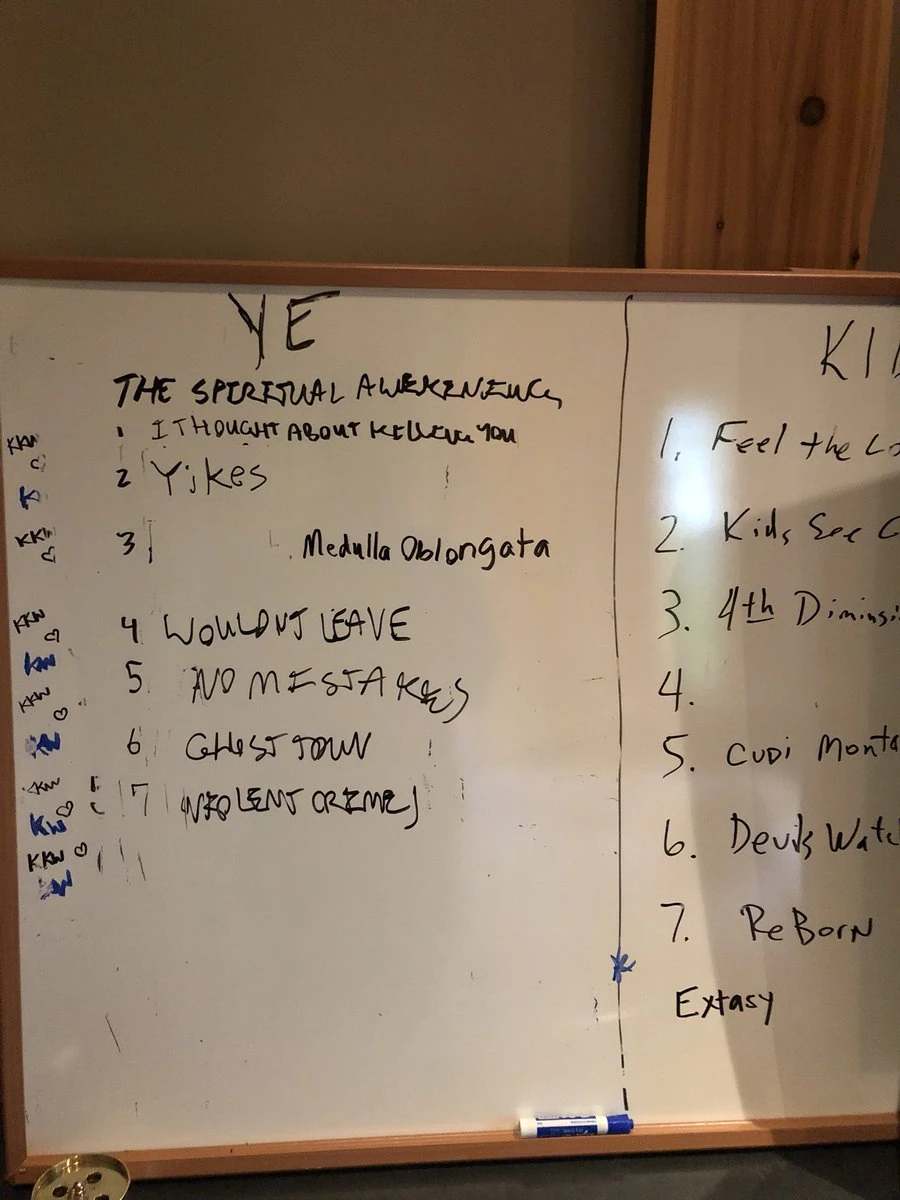 YE
THE SPIRITUAL AWEKENING
1 I THOUGHT ABOUT KILLING YOU
2 Yikes
3 Medulla Oblongata
4 WOULDNT LEAVE
5 NO MISTAKES
6 GHOST TOWN
7 VIOLENT CRIMES
KKW
KKW
KKW
KKW
KW
KKW
KI
1. Feel the Lo
2. Kids See
3. 4th Diminsi
4.
5. CUDI Monta
6. Devils Watc
7. ReBorn
Extasy